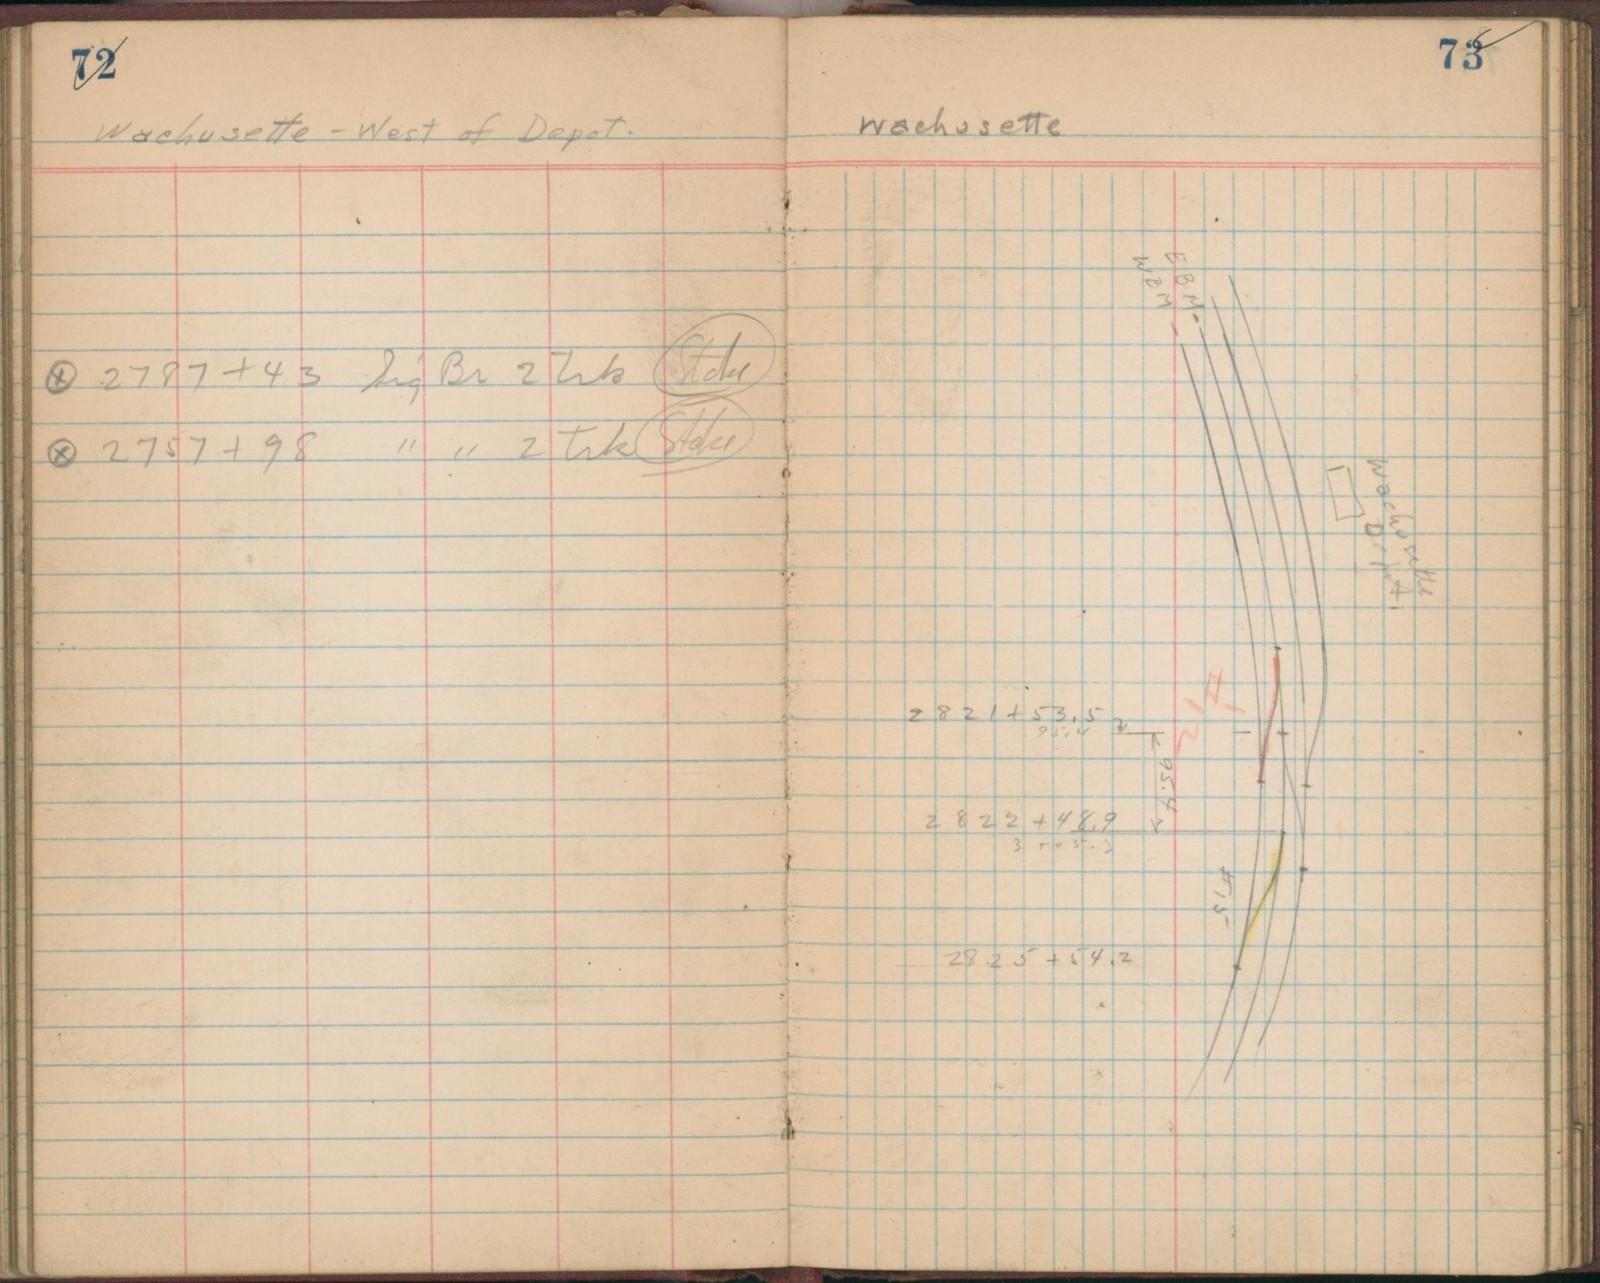 72
Wachusette - West of Depot.
⊗ 2787+43 Sig Br 2 Trk Stake
⊗ 2757+98 " " 2 Trk Stake
73
Wachusette
EBM
WBM
Wachusette
Depot.
2821+53.5
95.4
95.4
2822+48.9
3+05.3
#15
2825+54.2